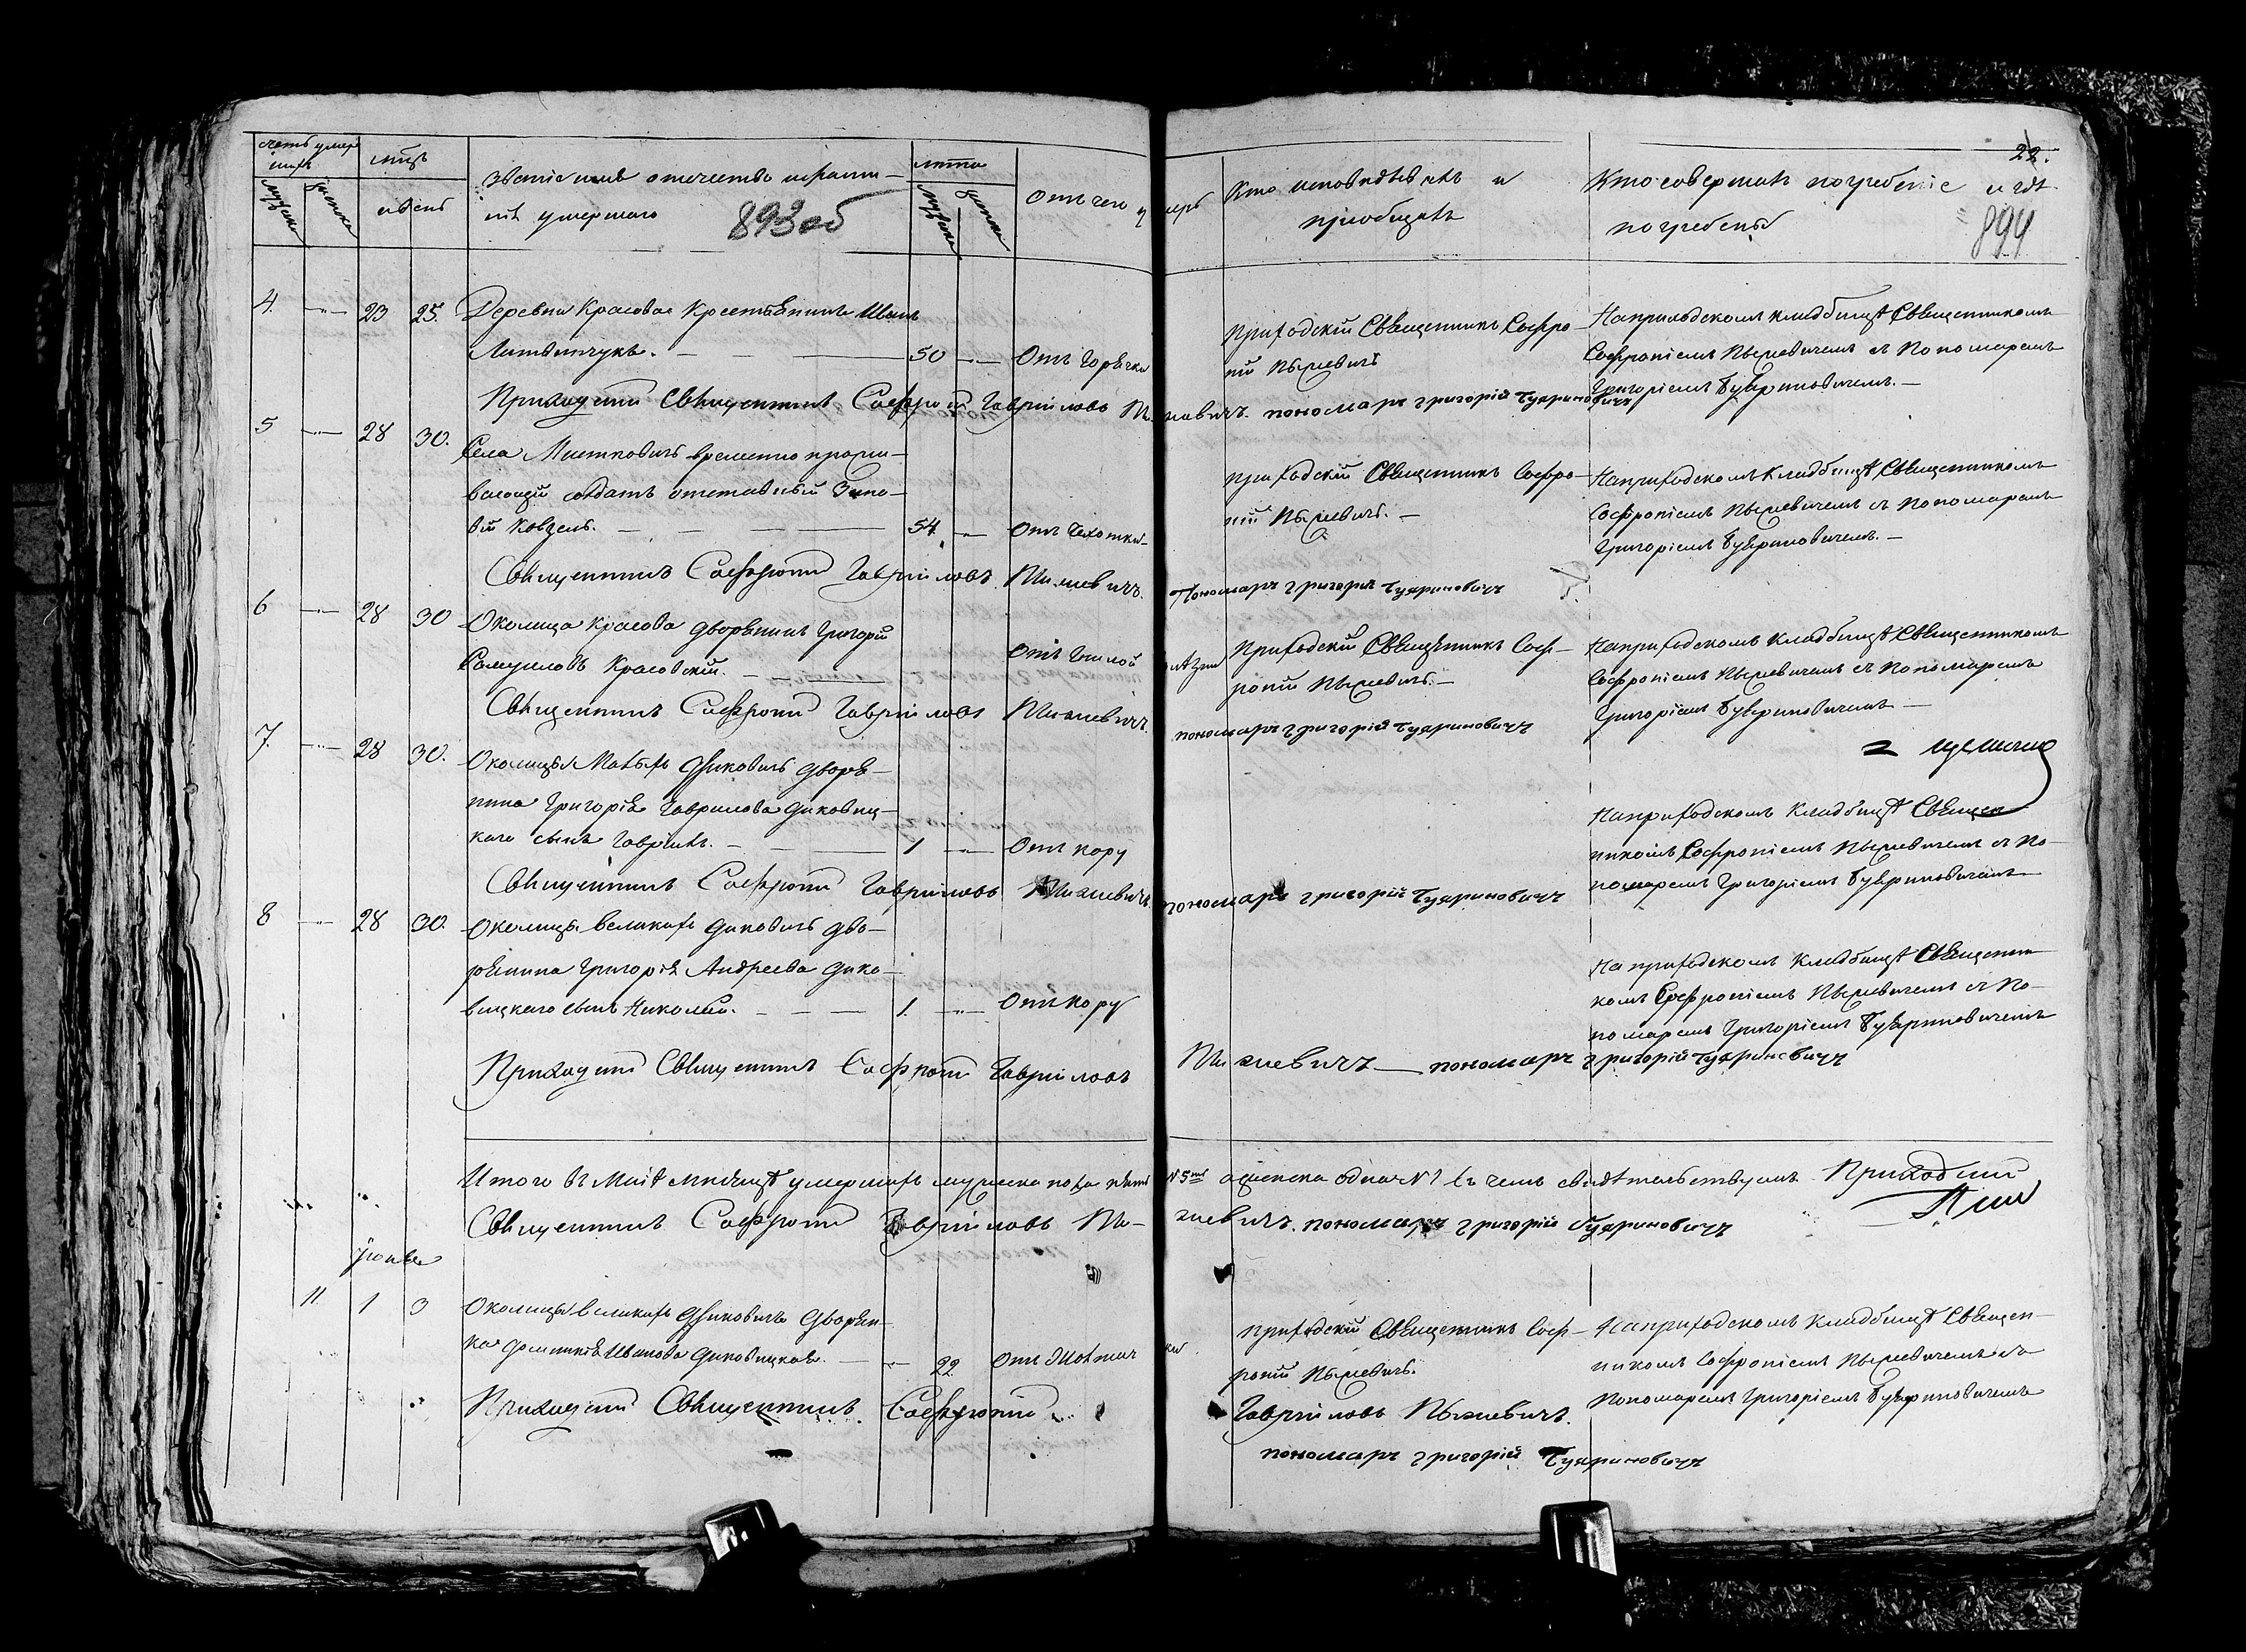 счетъ умер
шихъ
мужеска
женска
мѣсяцъ
и день
званіе имя отечество и фами-
лія умершаго
893 об
лѣта
мужеска
женска
Отъ чего умеръ
Кто исповѣдывалъ и
пріобщалъ
Кто совершалъ погребеніе и гдѣ
погребенъ
22.
894
4. 23 25. Деревни Красова Крестьянинъ Иванъ
Литвинчукъ. 50 Отъ горячки
Приходскій Священникъ Софро-
ній Пыжевичъ
На приходскомъ кладбищѣ Священникомъ
Софроніемъ Пыжевичемъ съ Пономаремъ
Григоріемъ
Приходскій Священникъ Софроній Гавриловъ Пыжевичъ. пономарь григорій
5 28 30. Села временно прожи-
вающій солдатъ отставный Зино-
вій 54 Отъ Чахотки
приходскій Священникъ Софро-
ній Пыжевичъ.
На приходскомъ Кладбищѣ Священникомъ
Софроніемъ Пыжевичемъ съ Пономаремъ
Григоріемъ
Священникъ Софроній Гавриловъ Пыжевичъ. Пономарь григорій
6 28 30 Околица Красова дворянинъ Григорій
Самуиловъ Красовскій. Отъ Гнилой
Приходскій Священникъ Соф-
роній Пыжевичъ.
На приходскомъ Кладбищѣ Священникомъ
Софроніемъ Пыжевичемъ съ Пономаремъ
Григоріемъ
Священникъ Софроній Гавриловъ Пыжевичъ пономарь григорій
7. 28 30. Околицы Малыхъ Диковичъ дворя-
нина Григорія Гаврилова Диковиц-
каго сынъ Гавріилъ. 1 Отъ кору
На приходскомъ Кладбищѣ Священ
никомъ Софроніемъ Пыжевичемъ съ По-
номаремъ Григоріемъ
Священникъ Софроній Гавриловъ Пыжевичъ пономарь григорій
8 28 30. Околицы Великихъ Диковичъ дво-
рянина Григорія Андреева Дико-
вицкаго сынъ Николай. 1. Отъ кору
На приходскомъ Кладбищѣ Священни
комъ Софроніемъ Пыжевичемъ съ По-
номаремъ Григоріемъ
Приходскій Священникъ Софроній Гавриловъ Пыжевичъ пономарь григорій
Итого въ Маѣ мѣсяцѣ умершихъ мужеска пола пять №5 а женска одна №1 въ чемъ свидѣтельствуемъ Приходскій
Священникъ Софроній Гавриловъ Пы-жевичъ. пономарь григорій
Іюнь
11 1 3 Околицы Великихъ Диковичъ Дворян-
ка Доминикія Иванова Диковицкая. 22 Отъ
Приходскій Священникъ Соф-
роній Пыжевичъ.
На приходскомъ Кладбищѣ Священ-
никомъ Софроніемъ Пыжевичемъ съ
Пономаремъ Григоріемъ
Приходскій Священникъ Софроній Гавриловъ Пыжевичъ.
пономарь григорій